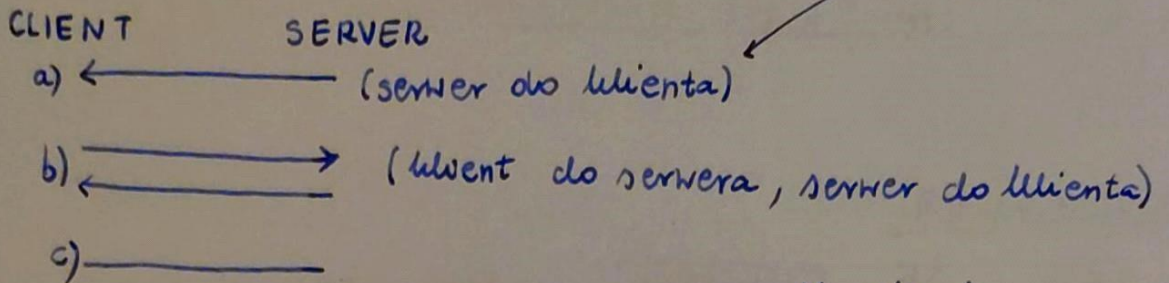 CLIENT SERVER
a) (serwer do klienta)
b) (klient do serwera, serwer do klienta)
c)